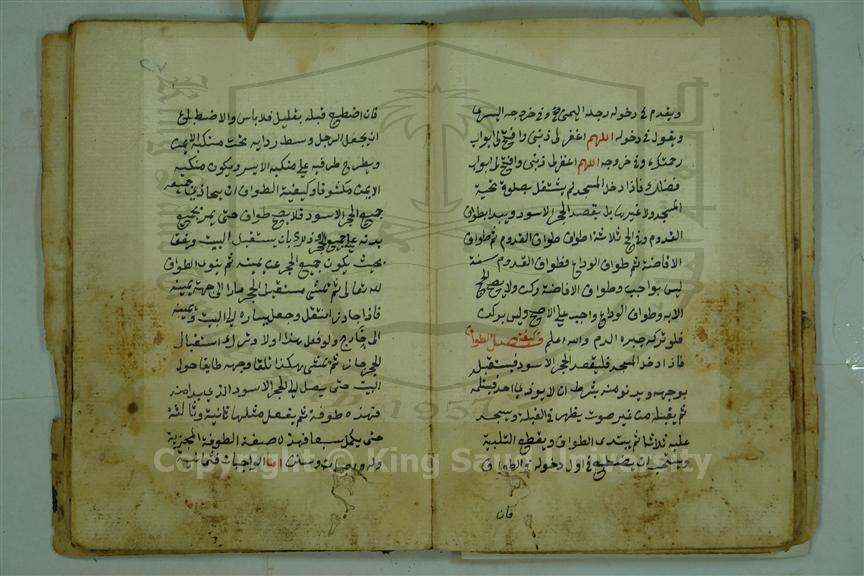 ويقدم في دخوله رجله اليمنى وفي خروجه اليسرى
ويقول في دخوله اللهم اغفر لي ذنبي وافتح لي ابواب
رحمتك وفي خروجه اللهم اغفر لي ذنبي وافتح لي ابواب
فضلك فاذا دخل المسجد لم يشتغل بصلوة تحية
المسجد ولا غيرها بل يقصد الحجر الاسود ويبدا بطواف
القدوم وفي الحج ثلاثة اطواف طواف القدوم ثم طواف
الافاضة ثم طواف الوداع فطواف القدوم سنة
ليس بواجب وطواف الافاضة ركن ولا يصح الحج
الا به وطواف الوداع واجب على الاصح وليس بركن
فلو تركه جبره الدم والله اعلم فصل الطواف
فاذا دخل المسجد فليقصد الحجر الاسود فيستقبله
بوجهه ويدنو منه بشرط ان لا يوذي احد فيستلمه
ثم يقبله من غير صوت يظهر في القبلة ويسجد
عليه ثلاثا ثم يبتدي الطواف ويقطع التلبية
ويستحب ان يضطبع في اول دخوله في الطواف
فان
٢٧
فان اضطبع قبله بقليل فلا باس والاضطباع
ان يجعل الرجل وسط ردايه تحت منكبه الايمن
ويطرح طرفيه على منكبه الايسر ويكون منكبه
الايمن مكشوفا وكيفية الطواف ان يحاذي جميعه
جميع الحجر الاسود فلا يصح طواف حتى يمر بجميع
بدنه على جميع الحجر وذلك بان يستقبل البيت ويقف
بحيث يكون جميع الحجر عن يمينه ثم ينوي الطواف
لله تعالى ثم يمشي مستقبل الحجر مارا الى جهة يمينه
فاذا جاوزه انتقل وجعل يساره الى البيت ويمينه
الى خارج ولو فعل بهذا اولا وترك استقبال
الحجر جاز ثم يمشي هكذا تلقا وجهه طايفا حول
البيت حتى يصل الى الحجر الاسود الذي بدا منه
فهذه طوفة ثم يفعل مثلها ثانية وثالثة
حتى يكمل سبعا فهذه صفة الطوفة المجزية
وله واجبات وسنن اما الواجبات فثمانية
Copyright © King Saud University
1957